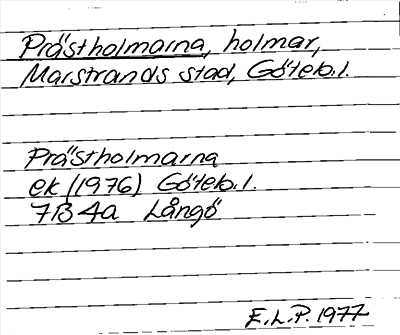 Prästholmarna, holmar,
Marstrands stad, Göteb.l.
Prästholmarna
ek (1976) Göteb.l.
7B 4a Långö
E.L.P. 1977